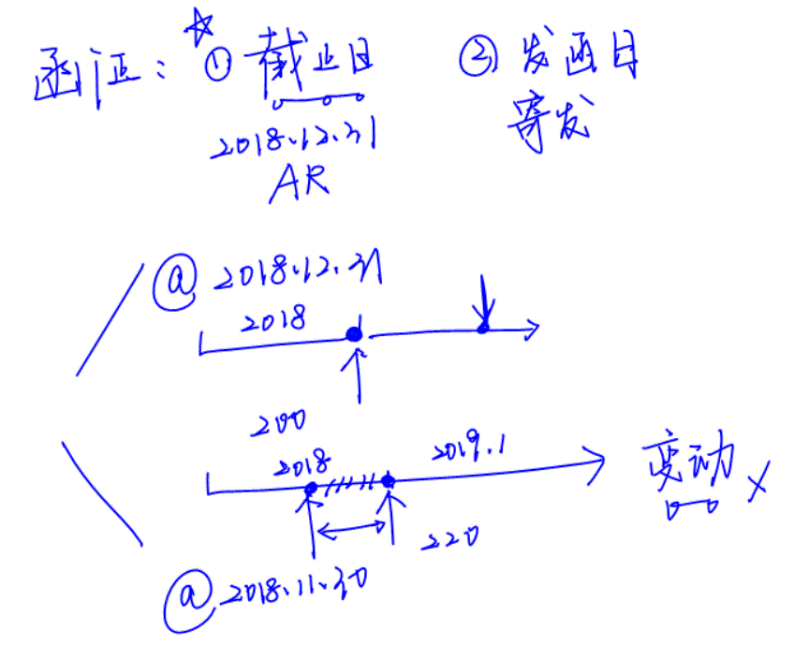 ☆
函证: ① 截止日 ② 发函日
2018.12.31 寄发
AR
@ 2018.12.31
2018
200
2018 2019.1 变动 ×
220
@ 2018.11.30